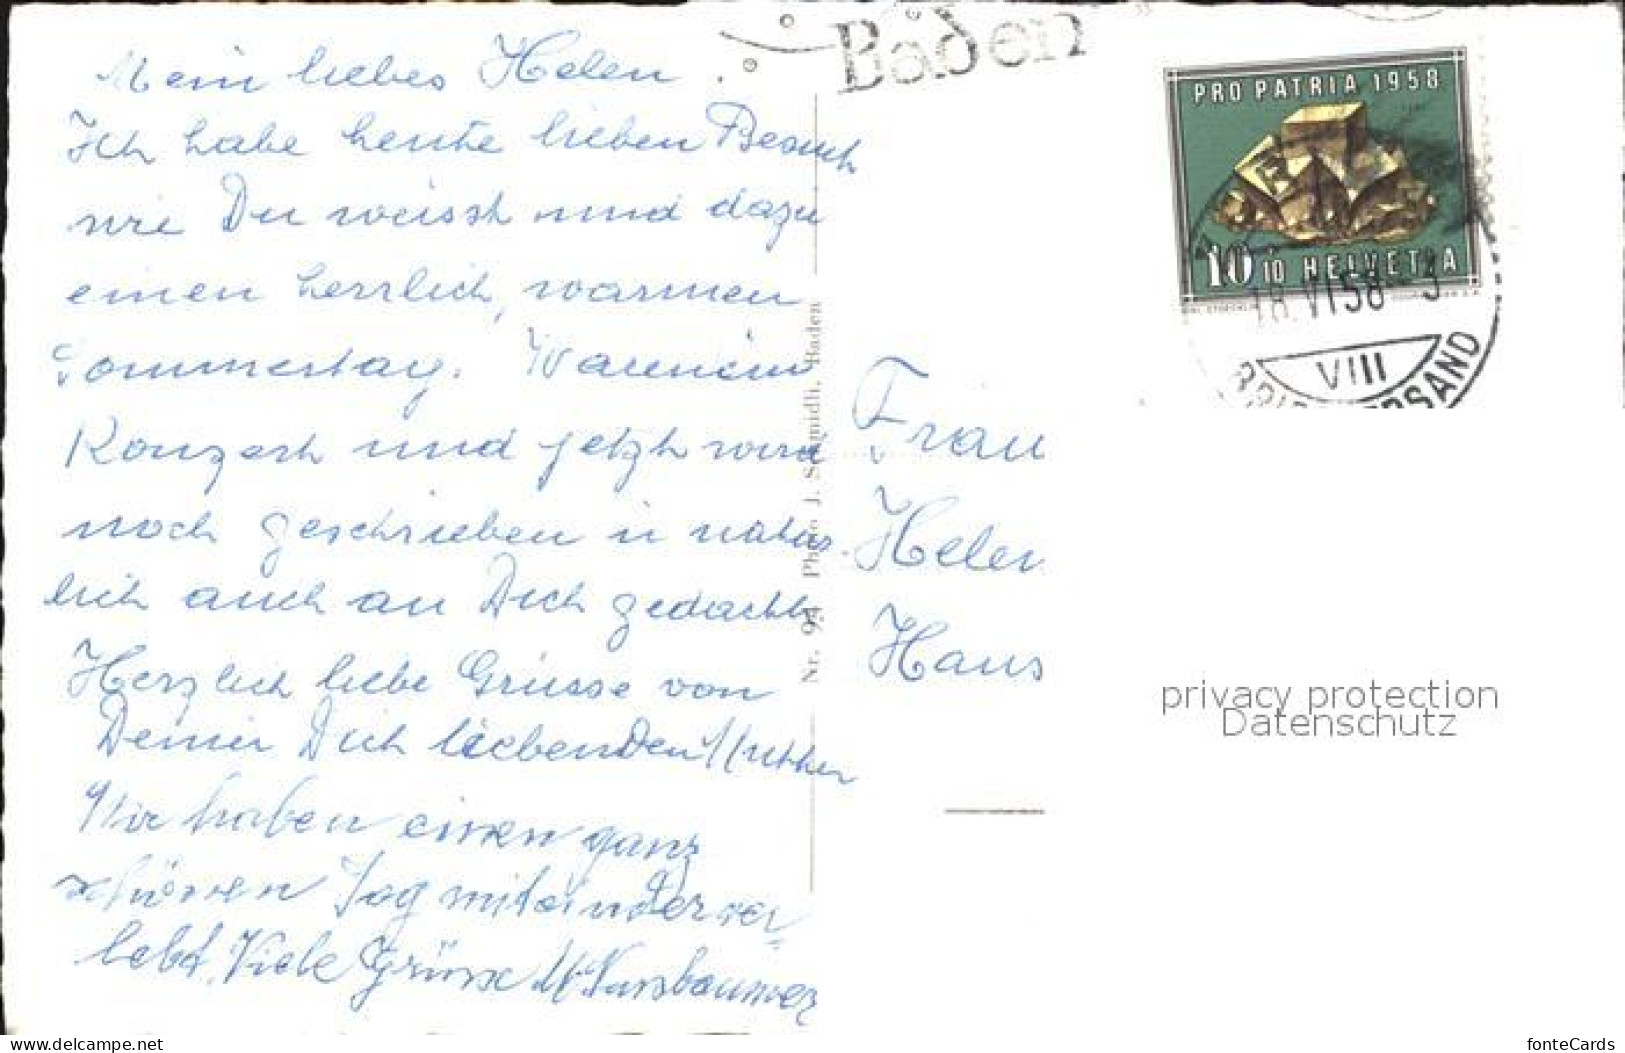 Mein liebes Helen.
Ich habe heute lieben Besuch
wie Du weisst und dazu
einen herrlich, warmen
Sommertag. Waren im
Konzert und jetzt wird
noch geschrieben u natür-
lich auch an Dich gedacht
Herzlich liebe Grüsse von
Deiner Dich liebenden Mutter
Wir haben einen ganz
schönen Tag miteinander ver-
lebt. Viele Grüsse
Nr. 94 Photo J. Schmidli, Baden
Baden
PRO PATRIA 1958
10 10 HELVETIA
18.VI58-
VIII
BRIEFVERSAND
Frau
Helen
Hans
privacy protection
Datenschutz
www.delcampe.net
fonteCards